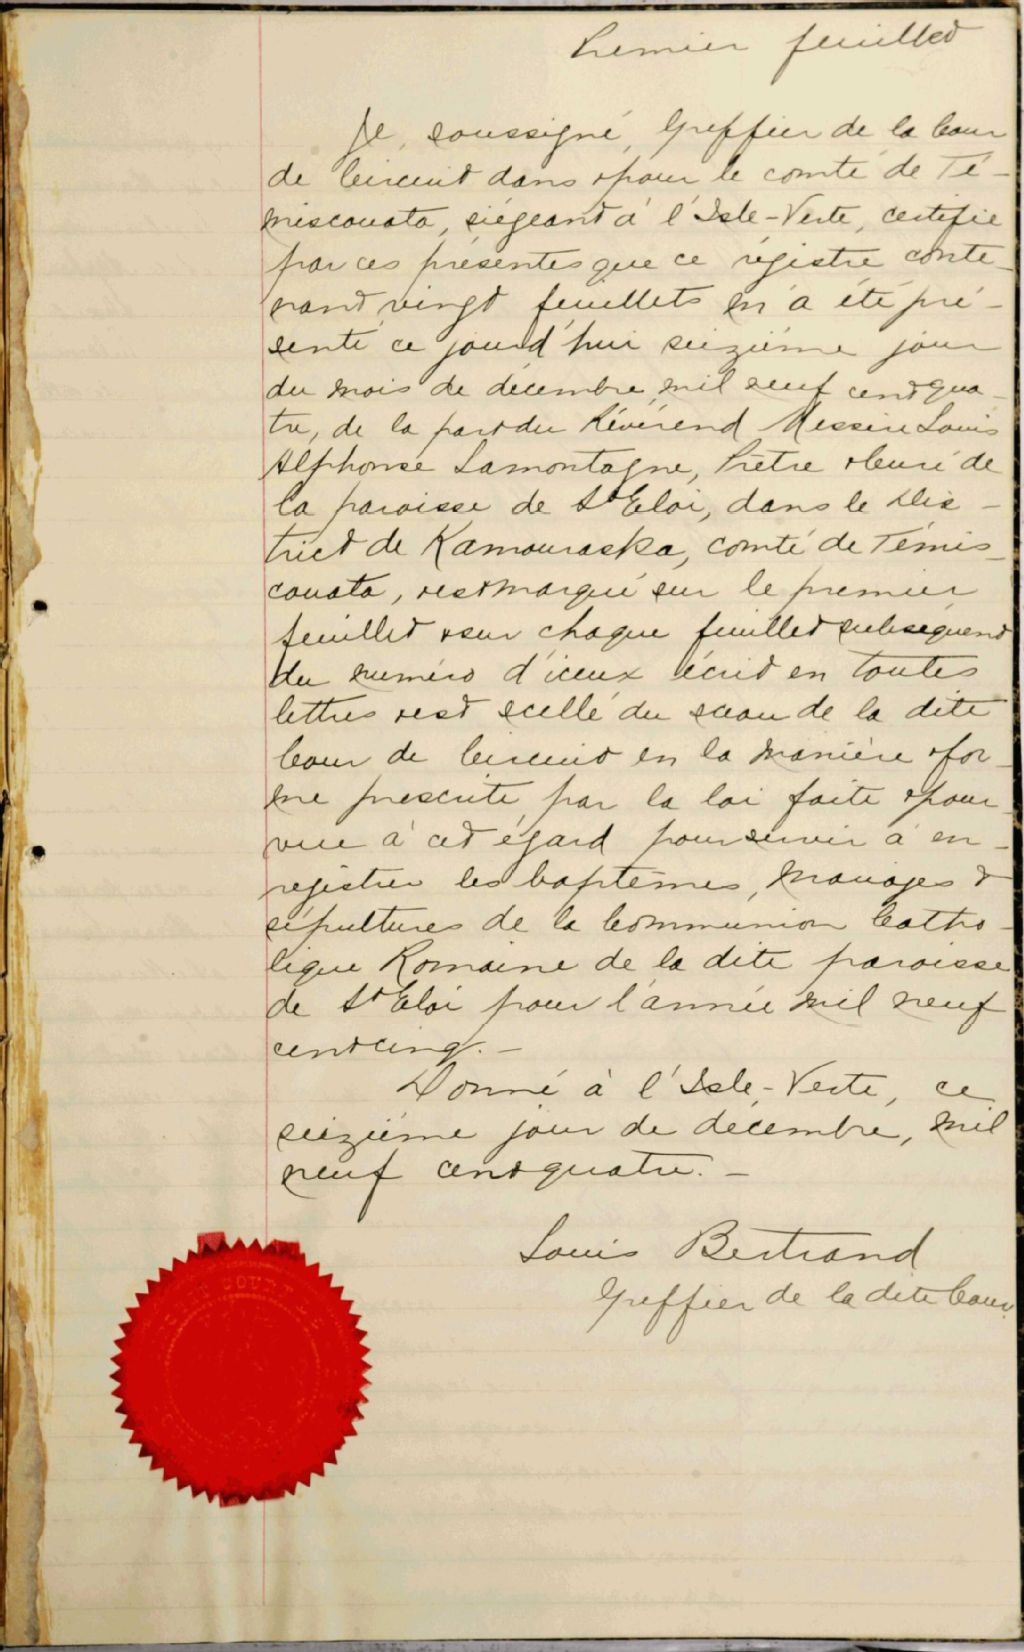 Premier feuillet
Je, soussigné, Greffier de la Cour
de Circuit dans & pour le comté de Té-
miscouata, siégeant à l'Isle-Verte, certifie
par ces présentes que ce régistre conte-
nant vingt feuillets m'a été pré-
senté ce jourd'hui seizième jour
du mois de décembre, mil neuf cent qua-
tre, de la part du Révérend Messire Louis
Alphonse Lamontagne, Prêtre & Curé de
la paroisse de St Eloi, dans le Dis-
trict de Kamouraska, comté de Témis-
couata, & est marqué sur le premier
feuillet & sur chaque feuillet subséquent
du numéro d'iceux écrit en toutes
lettres & est scellé du sceau de la dite
Cour de Circuit en la manière & for-
me prescrite par la loi faite & pour-
vue à cet égard pour servir à en-
registrer les baptêmes, mariages &
sépultures de la Communion Catho-
lique Romaine de la dite paroisse
de St Eloi pour l'année mil neuf
cent cinq. -
Donné à l'Isle-Verte, ce
seizième jour de décembre, mil
neuf cent quatre. -
Louis Bertrand
Greffier de la dite Cour